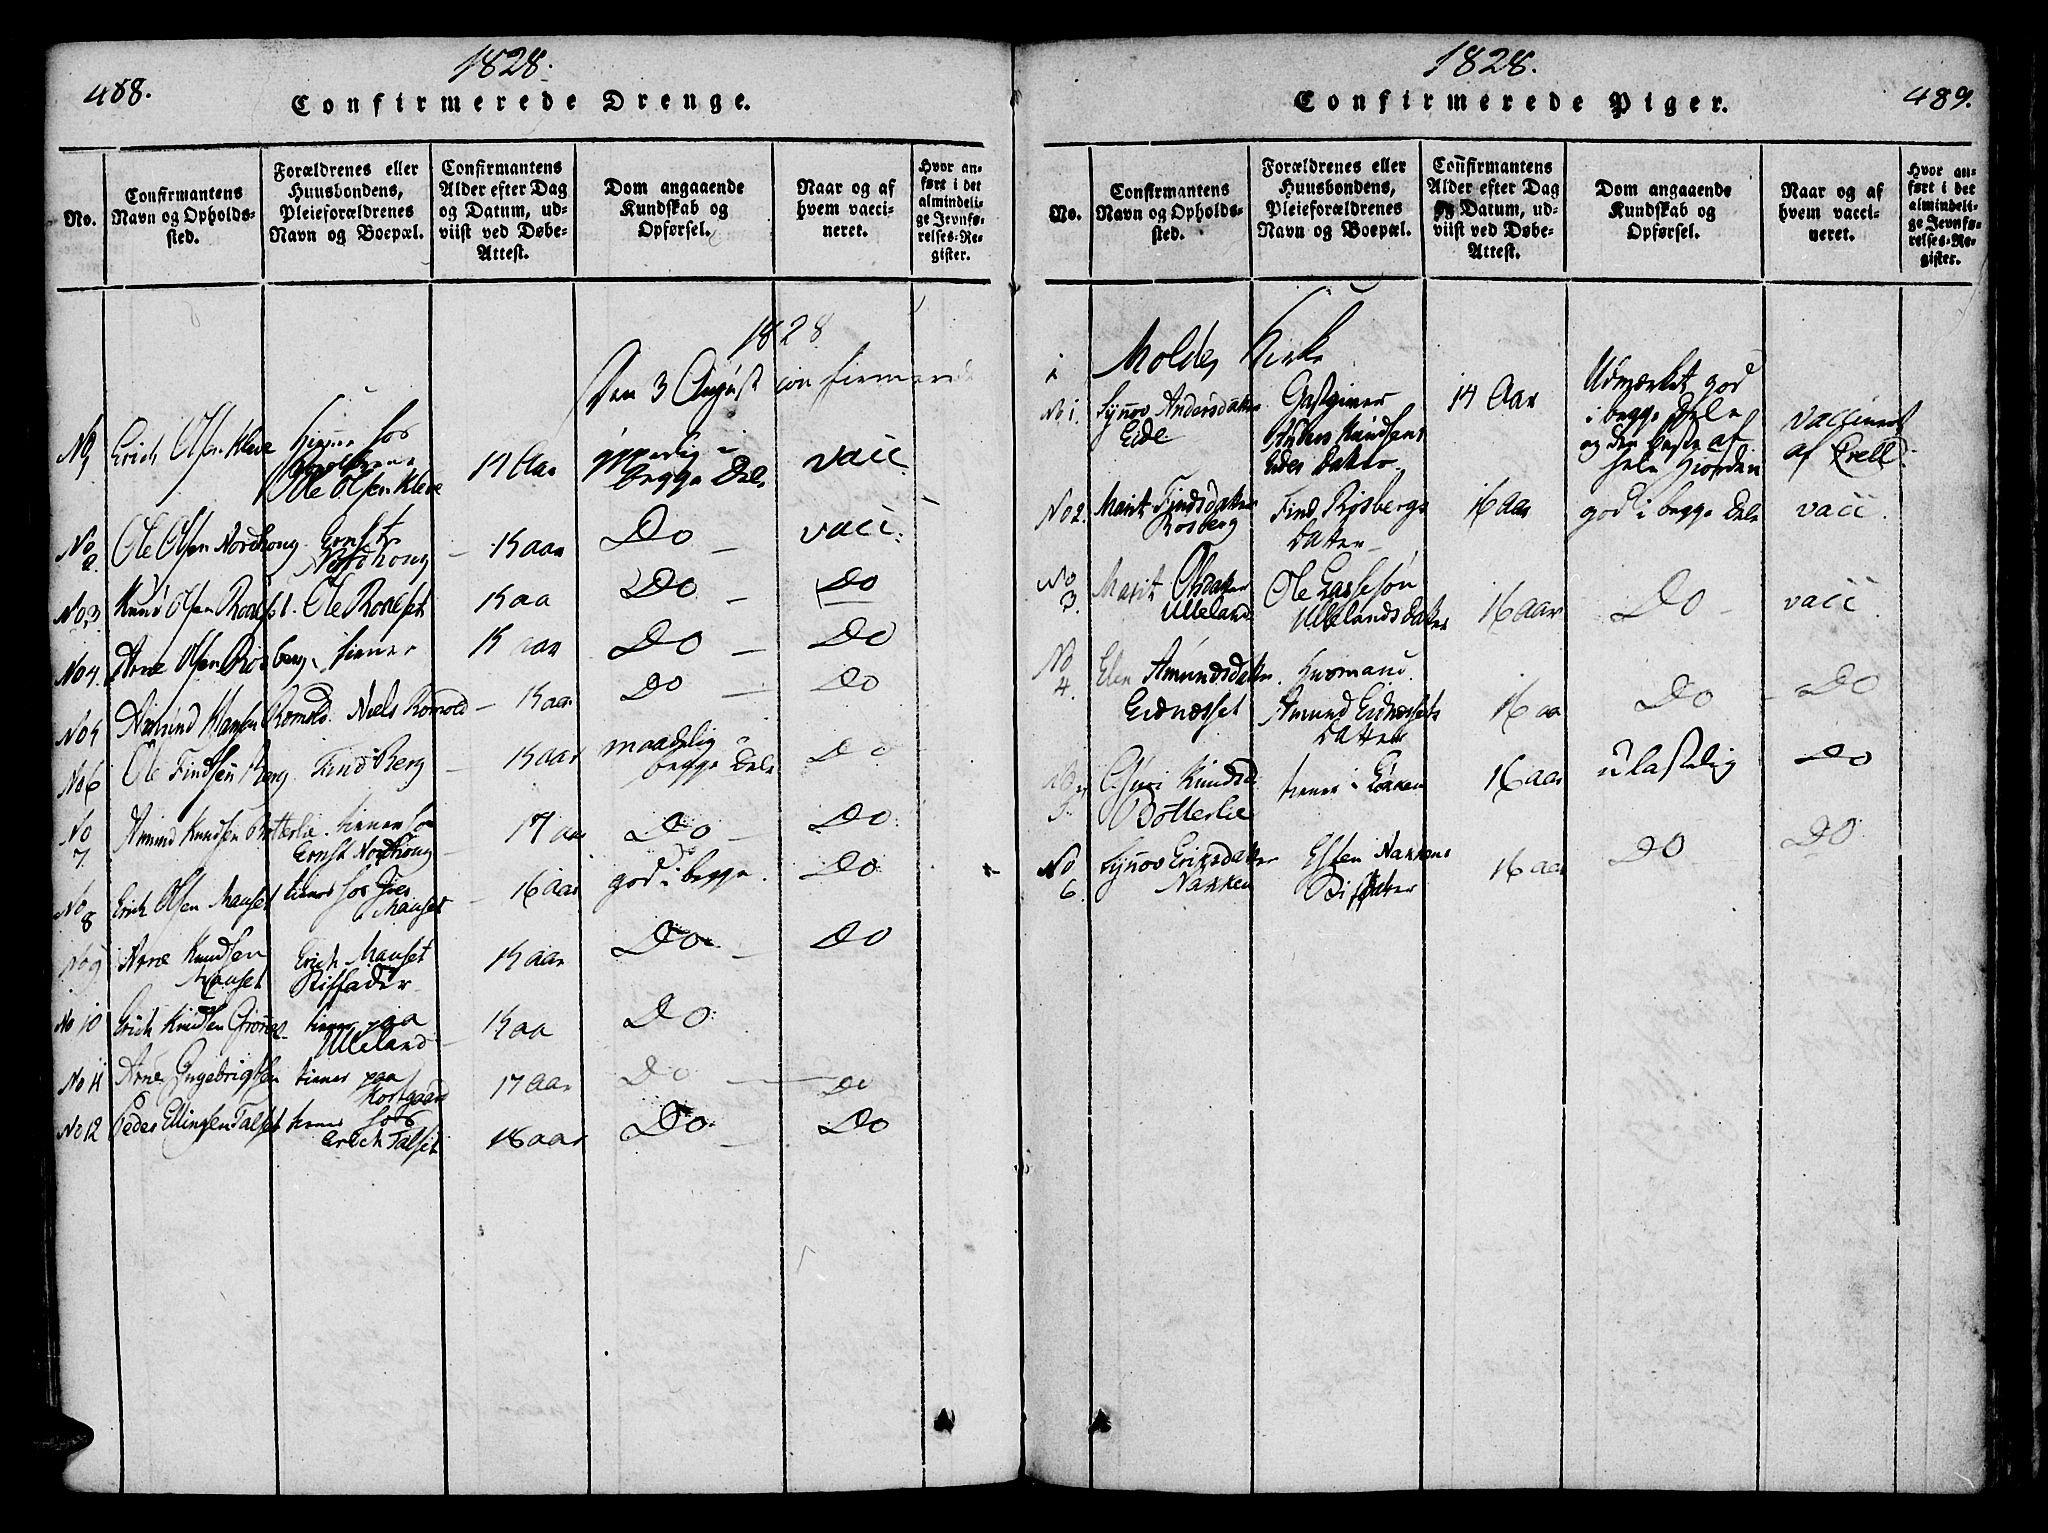 488.
1828.
Confirmerede Drenge.
No.
Confirmantens
Navn og Opholds-
sted.
Forældrenes eller
Huusbondens,
Pleieforældrenes
Navn og Boepæl.
Confirmantens
Alder efter Dag
og Datum, ud-
viist ved Døbe-
Attest.
Dom angaaende
Kundskab og
Opførsel.
Naar og af
hvem vacci-
neret.
Hvor an-
ført i det
almindeli-
ge Jevnfø-
relses-Re-
gister.
1828
Den 3 August confirmerede
No 1 Erich Olsen Kleve
Ole Olsen Kleve
Aar
begge Dele
vacc.
No 2 Ole Olsen Nordhong Ernst
Nordhong
aar Do vacc:
No 3 Knud Olsen Ole aa Do Do
No 4. Arne Olsen Rosberg. tiener aar Do Do
No 5 Amund Hansen Romold. Niels Romold aar Do Do
No 6 Ole Findsen Berg Find Berg aar maadelig i
begge Dele Do
No 7. Amund Knudsen Botterlie. tiener for
Ernst Nordhong
17 aar Do Do
No 8 Erich Olsen Manset tiener for Iver
Manset
16 aar god i begge. Do
No 9 Arne Knudsen
Manset
Erich Manset
Stiffader
aar Do Do
No 10 Erich Knudsen tiener paa
Ulleland
aa Do
No 11 Arne Engebrigtsen tiener paa
Kortgaard
17 aar Do Do
No 12 Peder Ellingsen Talset tiener for
Erich Talset
18 aar Do Do
1828.
489.
Confirmerede Piger.
No.
Confirmantens
Navn og Opholds-
sted.
Forældrenes eller
Huusbondens,
Pleieforældrenes
Navn og Boepæl.
Confirmantens
Alder efter Dag
og Datum, ud-
viist ved Døbe-
Attest.
Dom angaaende
Kundskab og
Opførsel.
Naar og af
hvem vacci-
neret.
Hvor an-
ført i det
almindeli-
ge Jevnfø-
relses-Re-
gister.
i Molde Kirke
No 1. Synov Andersdatter
Eide
Gastgiver
Anders Knudsens
Eides Datter
14 Aar
Udmærket god
i begge Dele
og den beste af
hele Hiorden
vaccineret
af Krell.
No 2. Marit Findsdatter
Rosberg
Find Rosbergs
Datter
16 aar god i begge Dele vacc.
No 3. Marit Olsdatter
Ulleland
Ole Lassesøn
Ullelands Datter
16 aar Do vacc.
No 4. Elen Amundsdatter
Eidnesset
Husmand
Amund Eidnessets
Datter
16 aa Do Do
No 5. Knudsd
Botterlie
tiener i Løkken 16 aar ulastelig Do
No 6. Synov Eriksdatter
Nakken
Esten Nakkens
Stifdatter
16 aar Do Do